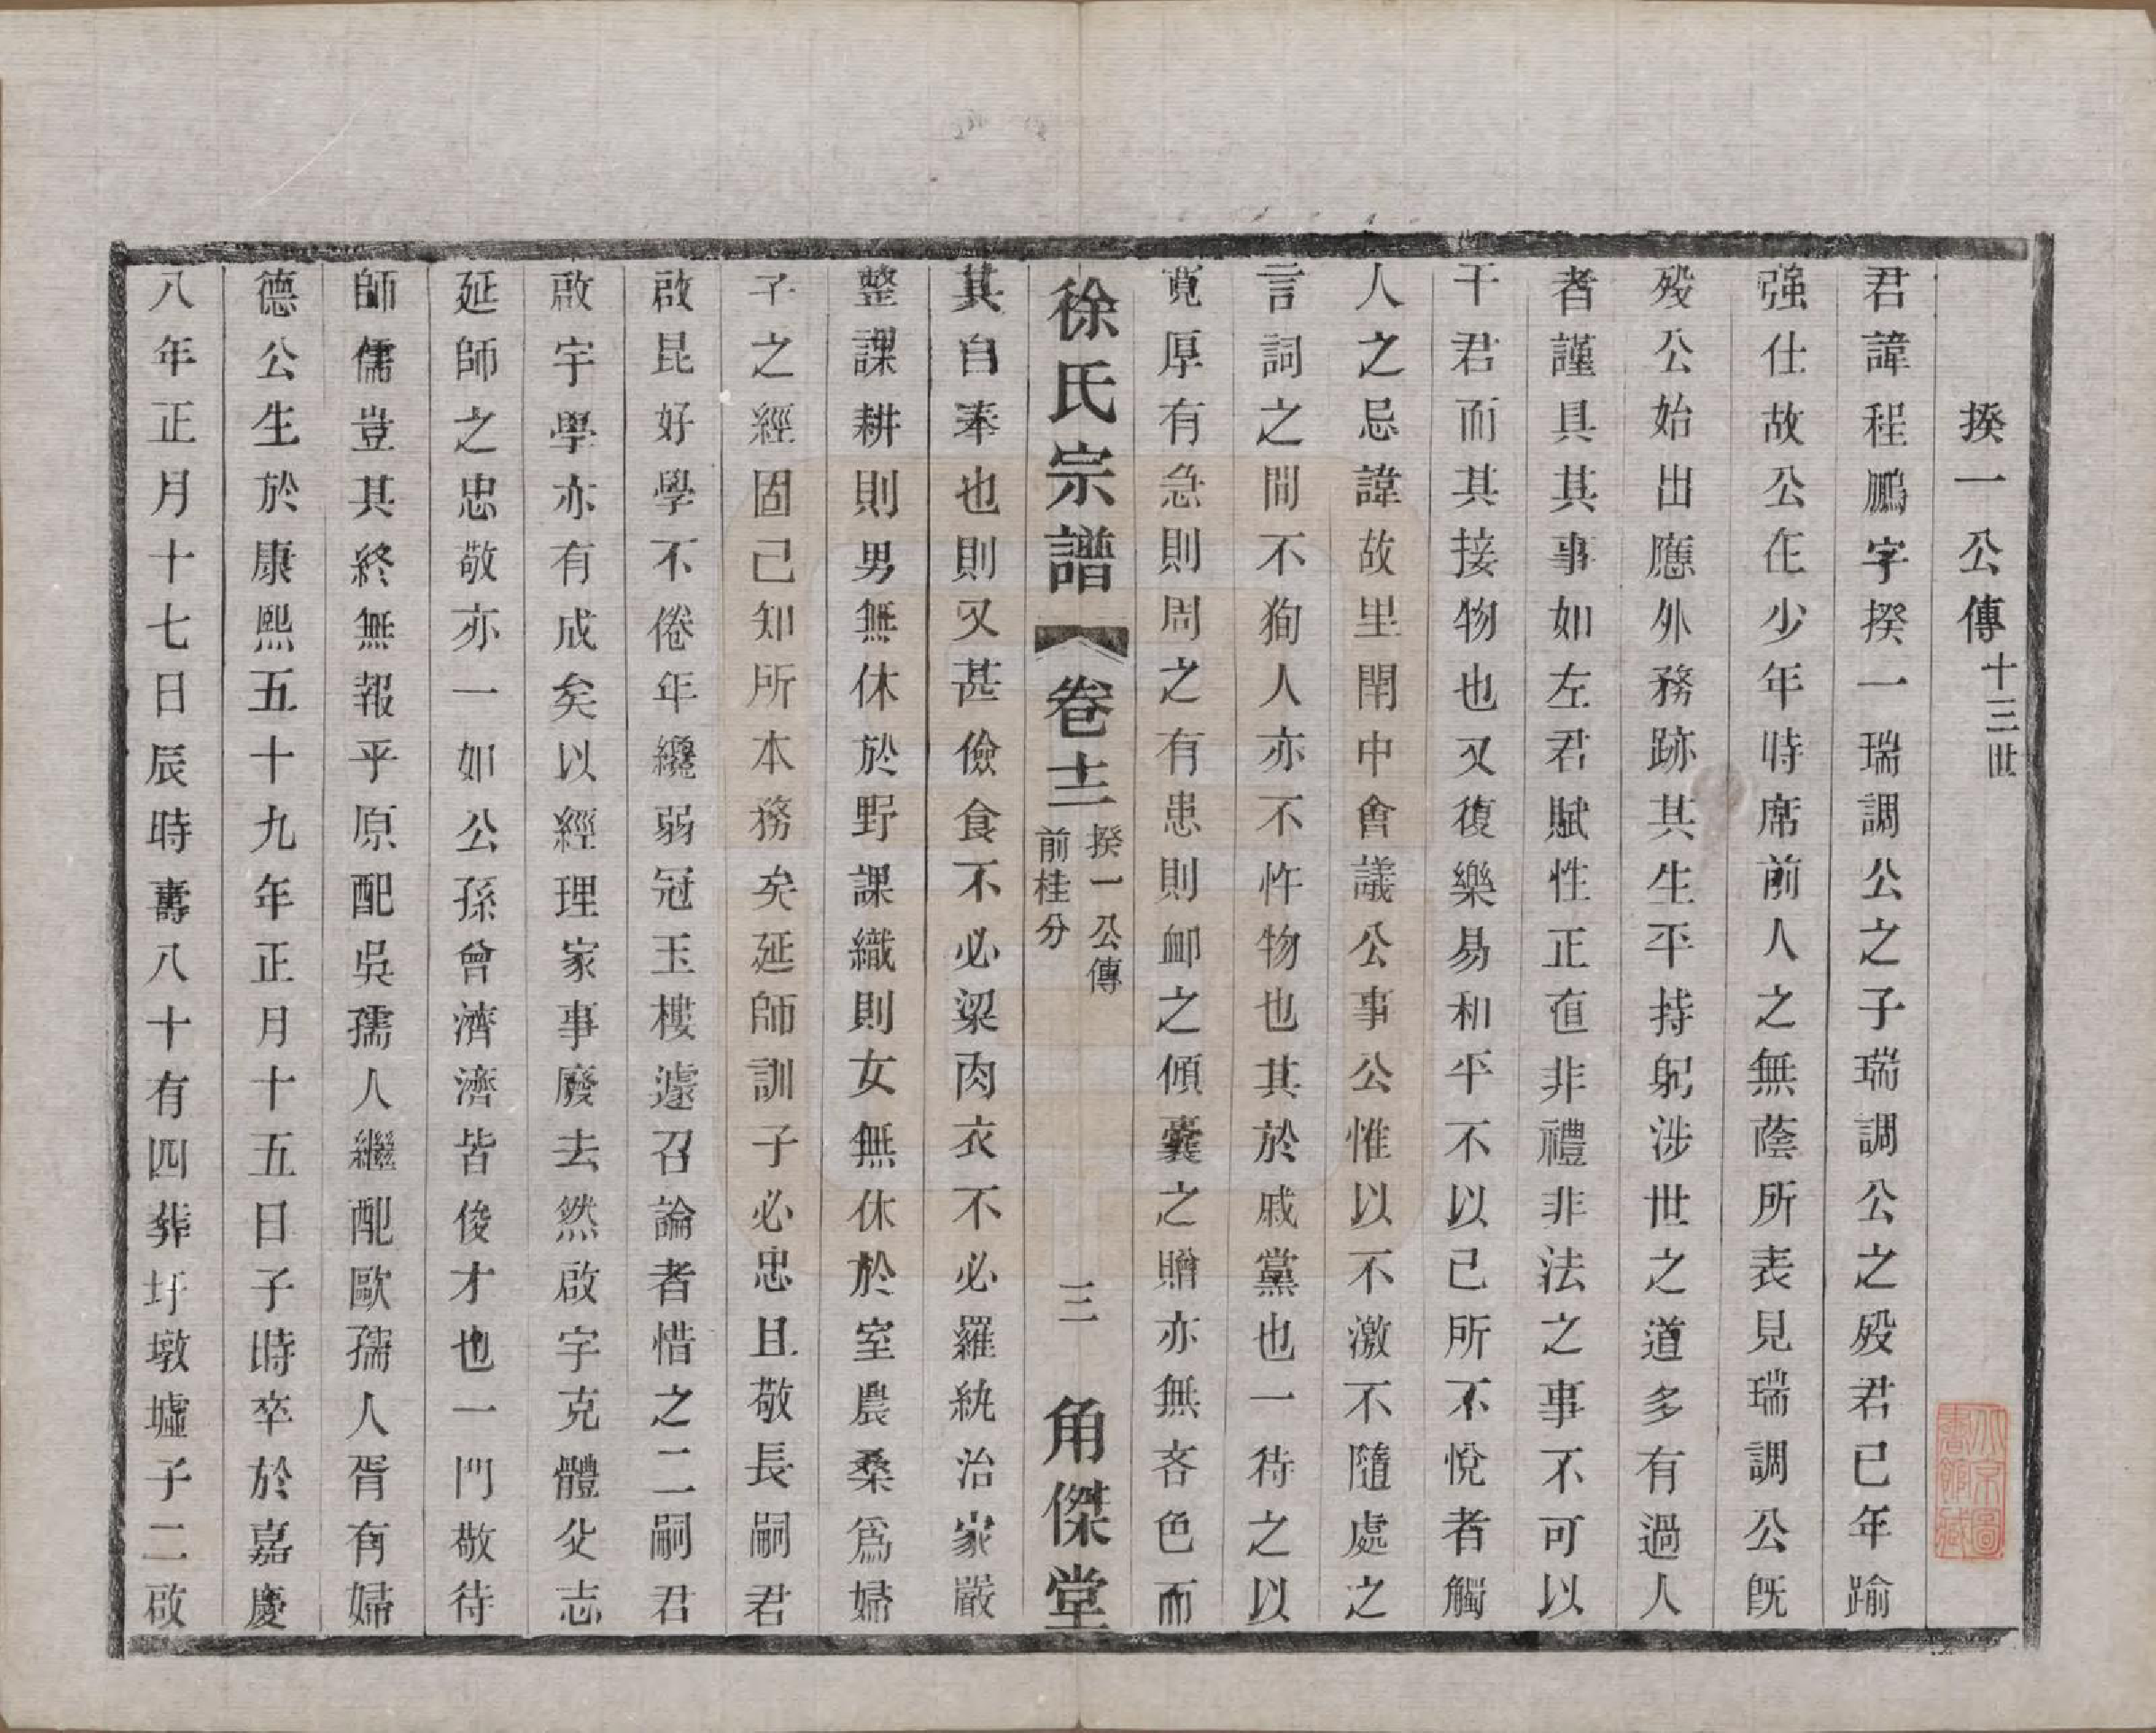 揆一公傳十三世
君諱程鵬字揆一瑞調公之子瑞調公之歿君已年踰
强仕故公在少年時席前人之無蔭所表見瑞調公旣
歿公始出應外務跡其生平持躬涉世之道多有過人
者謹具其事如左君賦性正直非禮非法之事不可以
干君而其接物也又復樂易和平不以己所不悅者觸
人之忌諱故里閈中會議公事公惟以不激不隨處之
言詞之間不狥人亦不忤物也其於戚黨也一待之以
寬厚有急則周之有患則衈之傾囊之贈亦無吝色而
徐氏宗譜 卷十三 揆一公傳 前桂分 三 角傑堂
其自奉也則又甚儉食不必粱肉衣不必羅紈治家嚴
整課耕則男無休於野課織則女無休於室農桑爲婦
子之經固己知所本務矣延師訓子必忠且敬長嗣君
啟昆好學不倦年纔弱冠玉樓遽召論者惜之二嗣君
啟宇學亦有成矣以經理家事廢去然啟宇克體父志
延師之忠敬亦一如公孫曾濟濟皆俊才也一門敬待
師儒豈其終無報乎原配吳孺人繼配歐孺人胥有婦
德公生於康熙五十九年正月十五日子時卒於嘉慶
八年正月十七日辰時壽八十有四葬圩墩墟子二啟